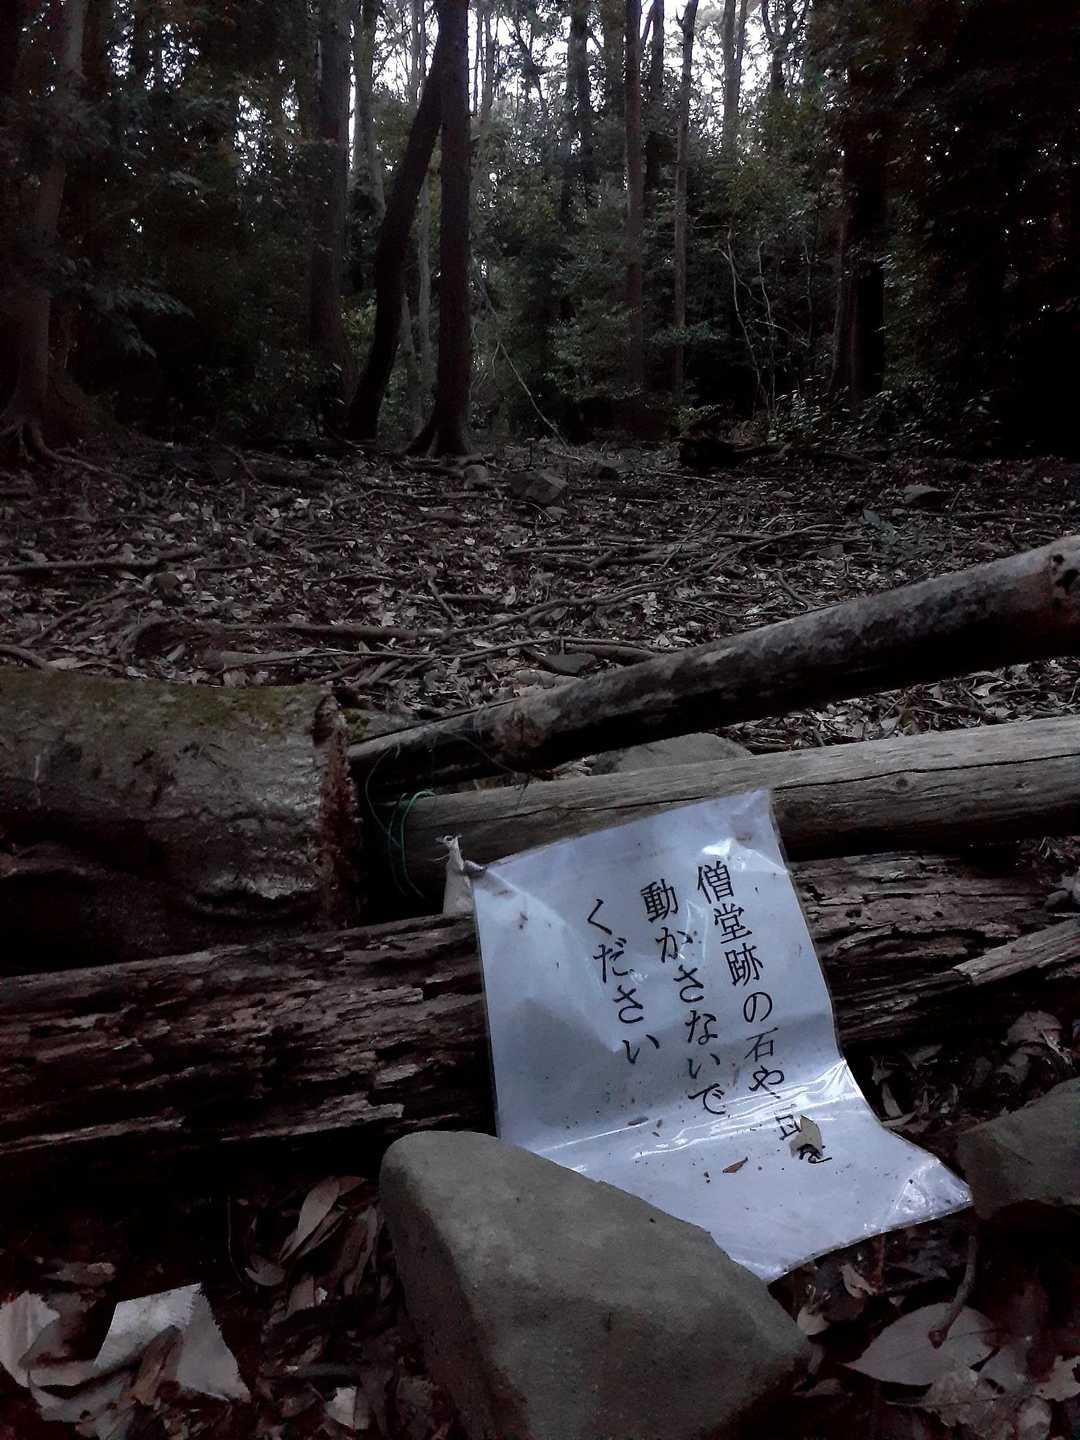 僧堂跡の石や瓦を
動かさないで
ください